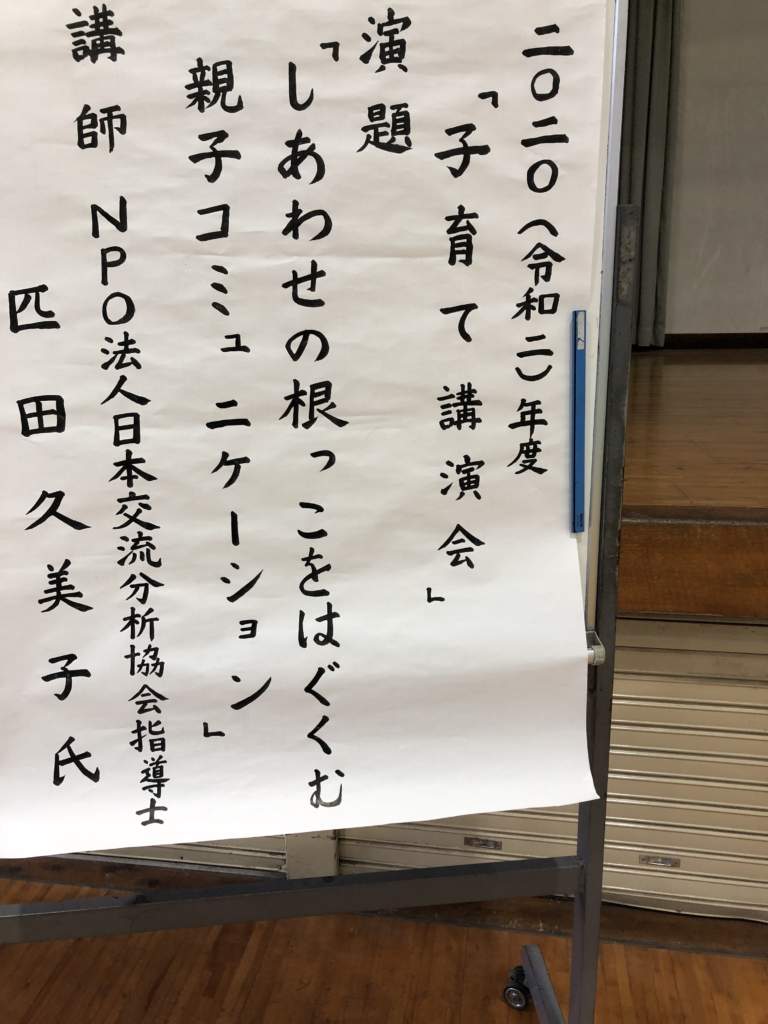 二〇二〇(令和二)年度
「子育て講演会」
演題
「しあわせの根っこをはぐくむ
親子コミュニケーション」
講師 NPO法人日本交流分析協会指導士
匹田久美子氏